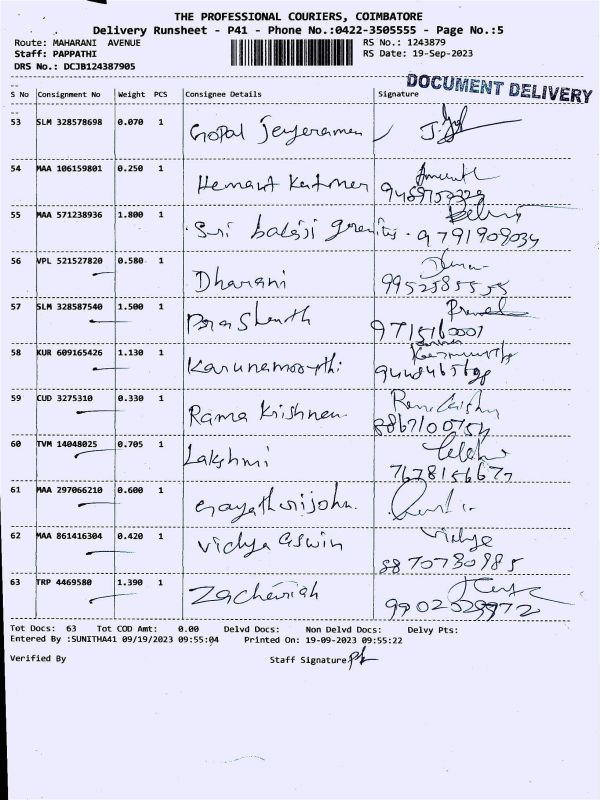 THE PROFESSIONAL COURIERS, COIMBATORE
Delivery Runsheet - P41 - Phone No.:0422-3505555 - Page No.:5
Route: MAHARANI AVENUE RS No.: 1243879
Staff: PAPPATHI RS Date: 19-Sep-2023
DRS No.: DCJB124387905
DOCUMENT DELIVERY
S No Consignment No Weight PCS Consignee Details Signature
53 SLM 328578698 0.070 1 Gopal Jeyeraman
54 MAA 106159801 0.250 1 Hemant
55 MAA 571238936 1.800 1 Sri balaji granites 9791909034
56 VPL 521527820 0.580 1 Dharani 9952585555
57 SLM 328587540 1.500 1 Prashanth 9715160007
58 KUR 609165426 1.130 1 Karunamoorthi
59 CUD 3275310 0.330 1 Rama Krishnan 8867100754
60 TVM 14048025 0.705 1 Lakshmi 7628156677
61 MAA 297066210 0.600 1 Gayathrijohn.
62 MAA 861416304 0.420 1 Vidhya Aswin Vidhye
8870730985
63 TRP 4469580 1.390 1 Zachariah 9902029972
Tot Docs: 63 Tot COD Amt: 0.00 Delvd Docs: Non Delvd Docs: Delvy Pts:
Entered By :SUNITHA41 09/19/2023 09:55:04 Printed On: 19-09-2023 09:55:22
Verified By Staff Signature